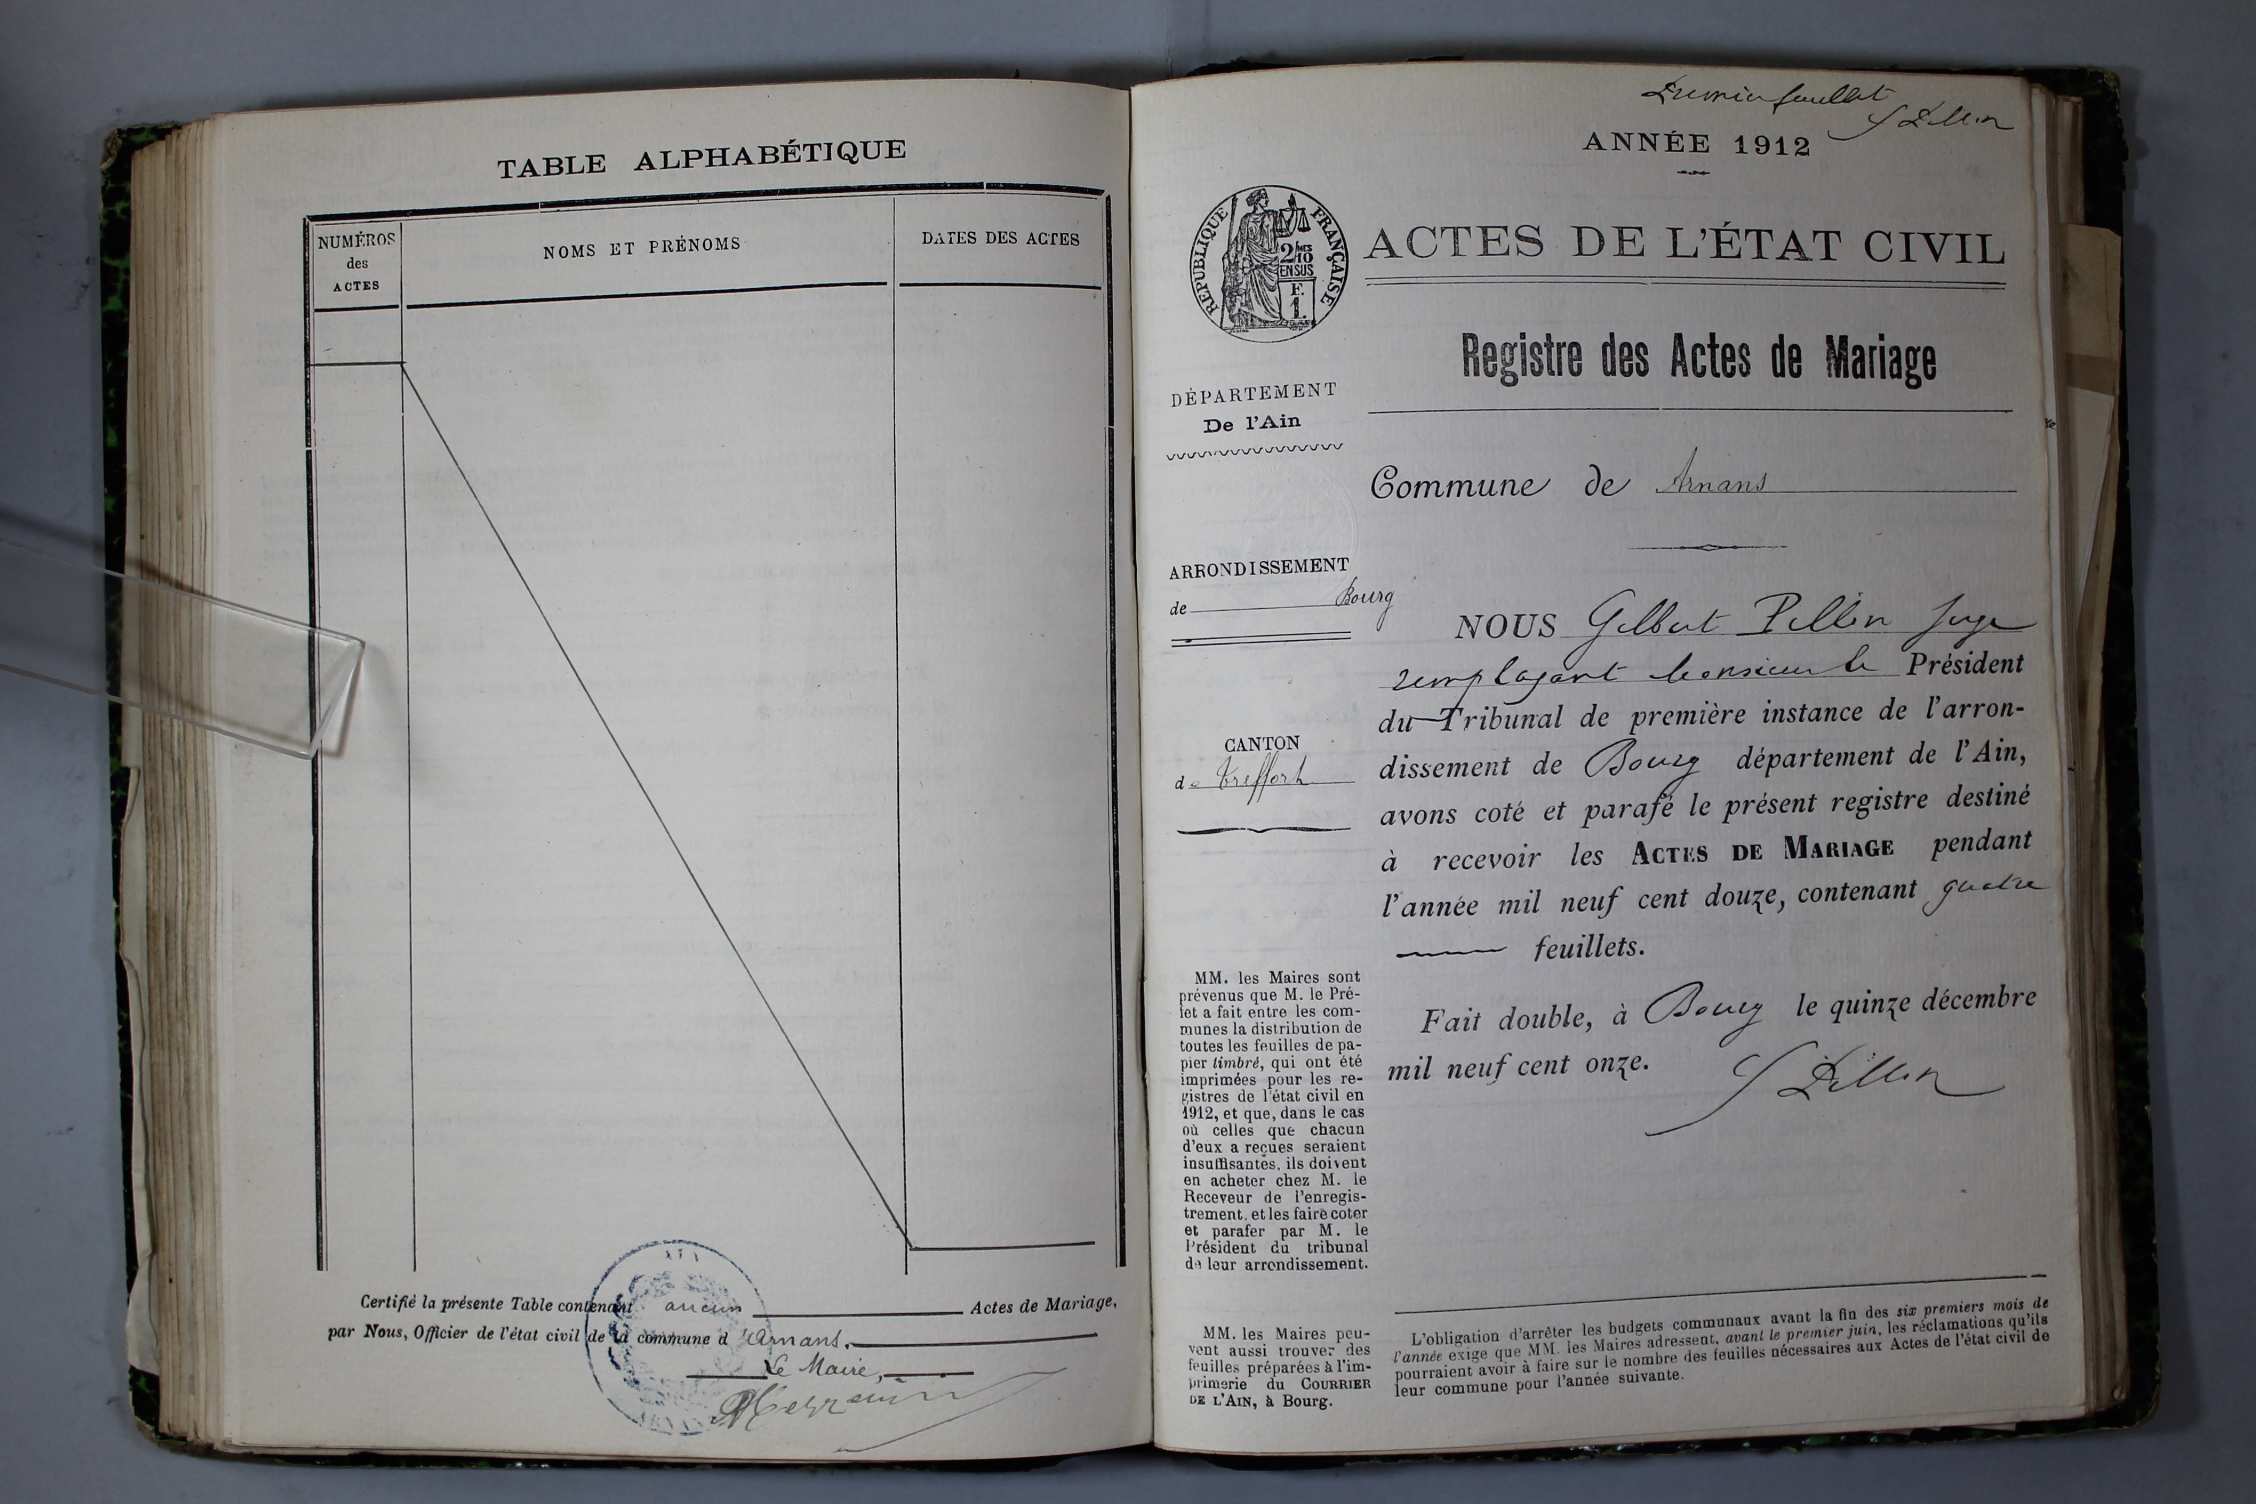 TABLE ALPHABÉTIQUE
NUMÉROS
des
ACTES
NOMS ET PRÉNOMS
DATES DES ACTES
Certifié la présente Table contenant aucun Actes de Mariage,
par Nous, Officier de l'état civil de la commune d'Arnans.
Le Maire,
AIN
ARNANS
Premier feuillet
G Pillin
ANNÉE 1912
RÉPUBLIQUE FRANÇAISE
2/10MES
EN SUS
F.
1.
ACTES DE L'ÉTAT CIVIL
Registre des Actes de Mariage
DÉPARTEMENT
De l'Ain
Commune de Arnans
ARRONDISSEMENT
de Bourg
CANTON
de Treffort
NOUS Gilbert Pillin Juge
remplaçant Monsieur le Président
du Tribunal de première instance de l'arron-
dissement de Bourg département de l'Ain,
avons coté et parafé le présent registre destiné
à recevoir les ACTES DE MARIAGE pendant
l'année mil neuf cent douze, contenant quatre
feuillets.
Fait double, à Bourg le quinze décembre
mil neuf cent onze.
G Pillin
MM. les Maires sont
prévenus que M. le Pré-
fet a fait entre les com-
munes la distribution de
toutes les feuilles de pa-
pier timbré, qui ont été
imprimées pour les re-
gistres de l'état civil en
1912, et que, dans le cas
où celles que chacun
d'eux a reçues seraient
insuffisantes, ils doivent
en acheter chez M. le
Receveur de l'enregis-
trement, et les faire coter
et parafer par M. le
Président du tribunal
de leur arrondissement.
MM. les Maires peu-
vent aussi trouver des
feuilles préparées à l'im-
primerie du COURRIER
DE L'AIN, à Bourg.
L'obligation d'arrêter les budgets communaux avant la fin des six premiers mois de
l'année exige que MM. les Maires adressent, avant le premier juin, les réclamations qu'ils
pourraient avoir à faire sur le nombre des feuilles nécessaires aux Actes de l'état civil de
leur commune pour l'année suivante.